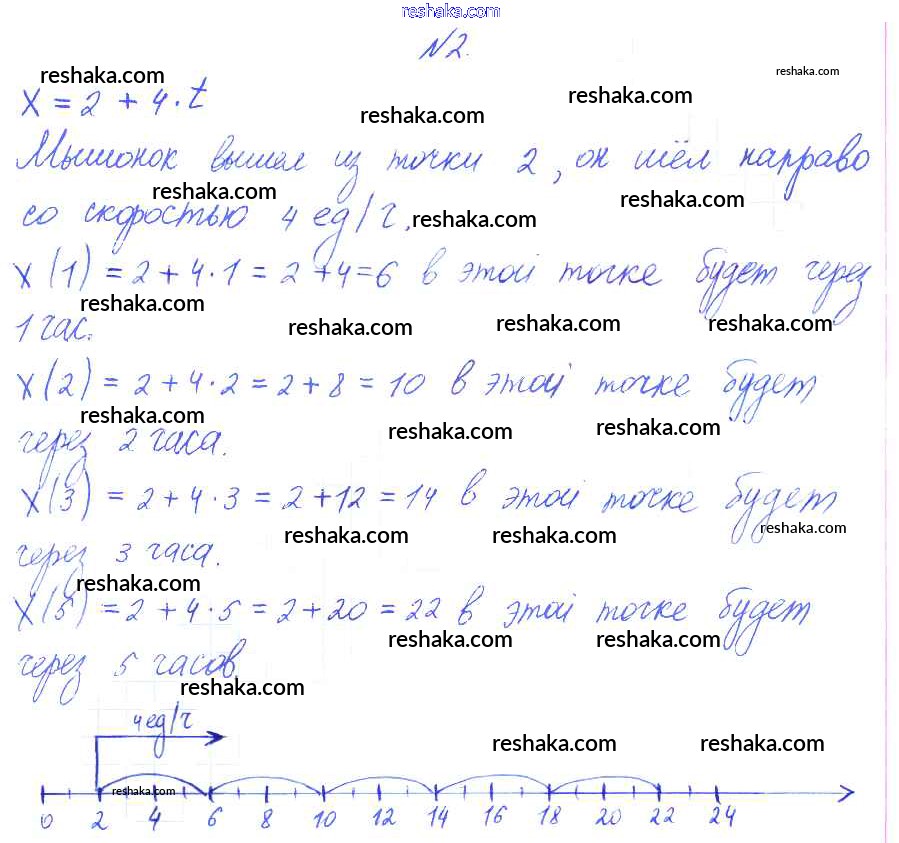 reshaka.com
N2.
reshaka.com
reshaka.com
x = 2 + 4 · t
reshaka.com
reshaka.com
Мышонок вышел из точки 2, он шёл направо
reshaka.com
reshaka.com
со скоростью 4 ед/ч.
reshaka.com
x(1) = 2 + 4 · 1 = 2 + 4 = 6 в этой точке будет через
reshaka.com
1 час.
reshaka.com
reshaka.com
reshaka.com
x(2) = 2 + 4 · 2 = 2 + 8 = 10 в этой точке будет
reshaka.com
через 2 часа.
reshaka.com
reshaka.com
x(3) = 2 + 4 · 3 = 2 + 12 = 14 в этой точке будет
reshaka.com
reshaka.com
reshaka.com
через 3 часа.
reshaka.com
x(5) = 2 + 4 · 5 = 2 + 20 = 22 в этой точке будет
reshaka.com
reshaka.com
через 5 часов.
reshaka.com
4 ед/ч
reshaka.com
reshaka.com
reshaka.com
0 2 4 6 8 10 12 14 16 18 20 22 24